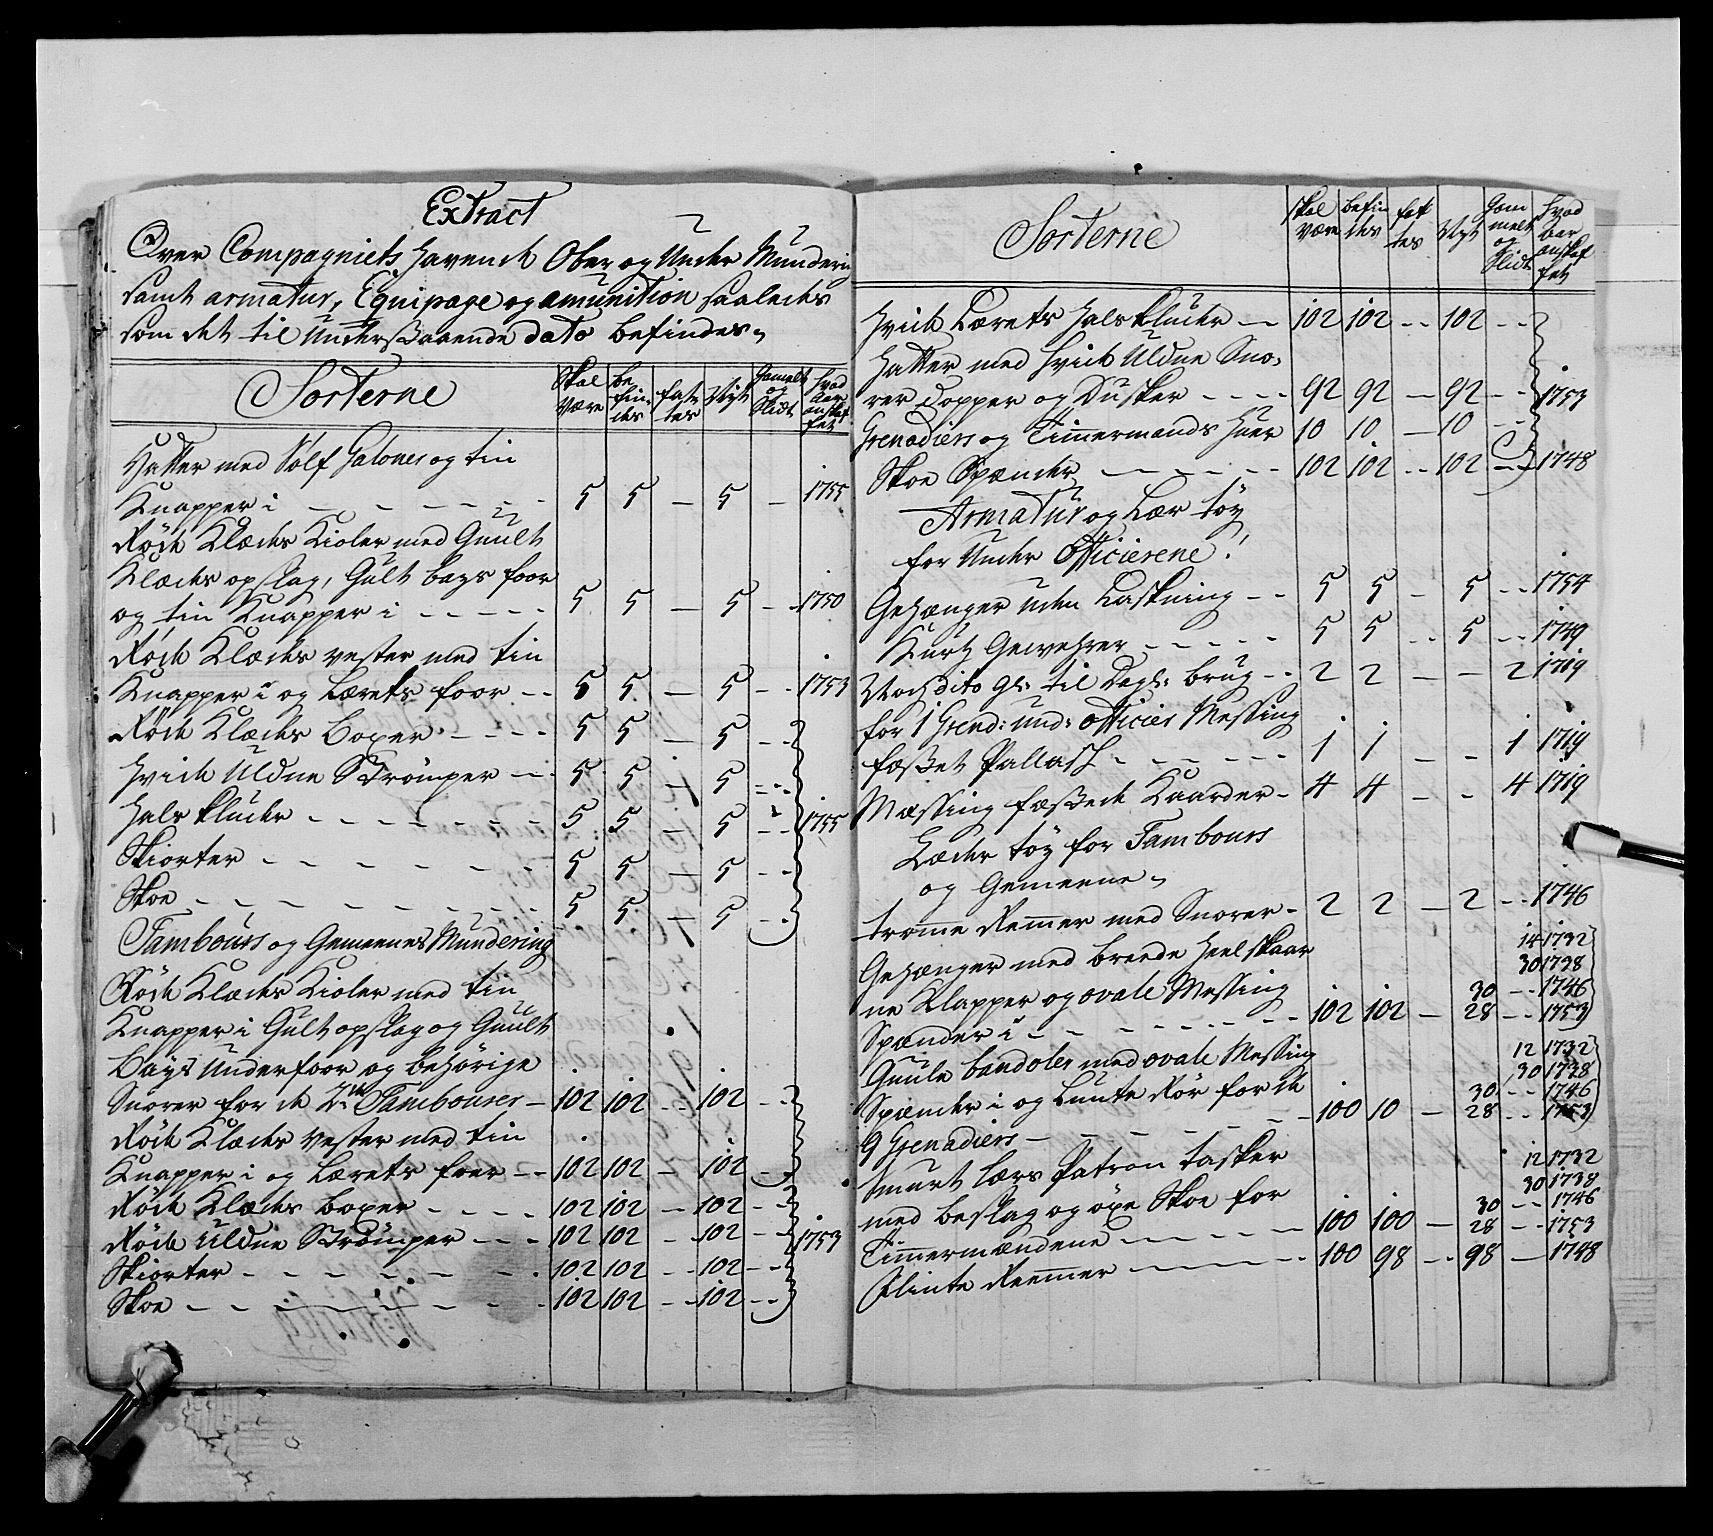 Extract
Over Compagniets havende Ober og Under Mundering
samt armatur, Equipage og amunition saaledes
som det til Understaaende dato befindes
Sorterne Skal Være Be findes fattes Nyt Gamelt og Slidt hvad Aar anskaffet
Hatter med Sølf Galoner og tin
Knapper i - - - 5 5 - 5 - 1755
Røde Klædes Kioler med Guult
Klædes opslag, Gult bays foer
og tin Knapper i - - - 5 5 - 5 - - 1750
Røde Klædes vester med tin
Knapper i og Lærets foer - - 5 5 - 5 - - 1753
Røde Klædes Boxer - - - 5 5 - 5 - -
Hvide Uldne Strømper - - 5 5 - 5 - -
Hals klude - - - 5 5 - 5 - - 1755
Skiorter - - - 5 5 - 5 - -
Skoe - - - 5 5 - 5 - -
Tambours og Gemeenes Mundering
Røde Klædes Kioler med tin
Knapper i Gult opslag og Guult
Bays Underfoer og behørige
Snorer for de 2de Tambourer - 102 102 - - 102 - -
Røde Klædes Vester med tin
Knapper i og Lærets foer - - 102 102 - 102 - -
Røde Klædes boxer - - - 102 102 - 102 - -
Røde Uldne Strømper - - - 102 102 - - 102 - - 1753
Skiorter - - - 102 102 - - 102 - -
Skoe - - - 102 102 - - 102 - -
Sorterne Skal være befindes fattes Nyt Gammelt og Slidt hvad aar anskaffet
Hvide Lærets Halsklude - 102 102 - - 102 - -
Hatter med hvide Uldne Sno-
rer dopper og Dusker - - - 92 92 - 92 - - 1753
Grenadiers og Timmermands Huer 10 10 - 10 - -
Skoe Spænder - - - 102 102 - - 102 - - 1748
Armatur og Lær tøy
for Under Officierene!
Gehænger uden Laskning - - 5 5 - 5 - - 1754
Kurtz Gewehrer - - - 5 5 - - 5 - - 1749
Noch dito Gl: til Dagl: brug - - 2 2 - - 2 1719
for 1 Grend: und: officier Messing
fæstet Pallasch - - - 1 1 - - 1 1719
Messing fæstede Kaarder - 4 4 - - 4 1719
Læder tøy for Tambours
og Gemeene
tromme Remmer med Snorer - 2 2 - 2 - - 1746
14 1732
Gehænger med breede heelskaar 30 1738
ne Klapper og ovale Messing 30 - - 1746
Spænder i - - - 102 102 - 28 - - 1753
12 1732
Guule bandoler med ovale Messing 30 1738
Spænder i og Lunte Rør for de 30 - - 1746
9 Grenadiers - - - 100 10 - 28 - - 1753
12 1732
Smurt Lærs Patron tasker 30 1738
med beslag og øxe Skoe for 30 - - 1746
Timmermændene - - - 100 100 - 28 - - 1753
Flinte Remmer - - - 100 98 - - 98 - 1748